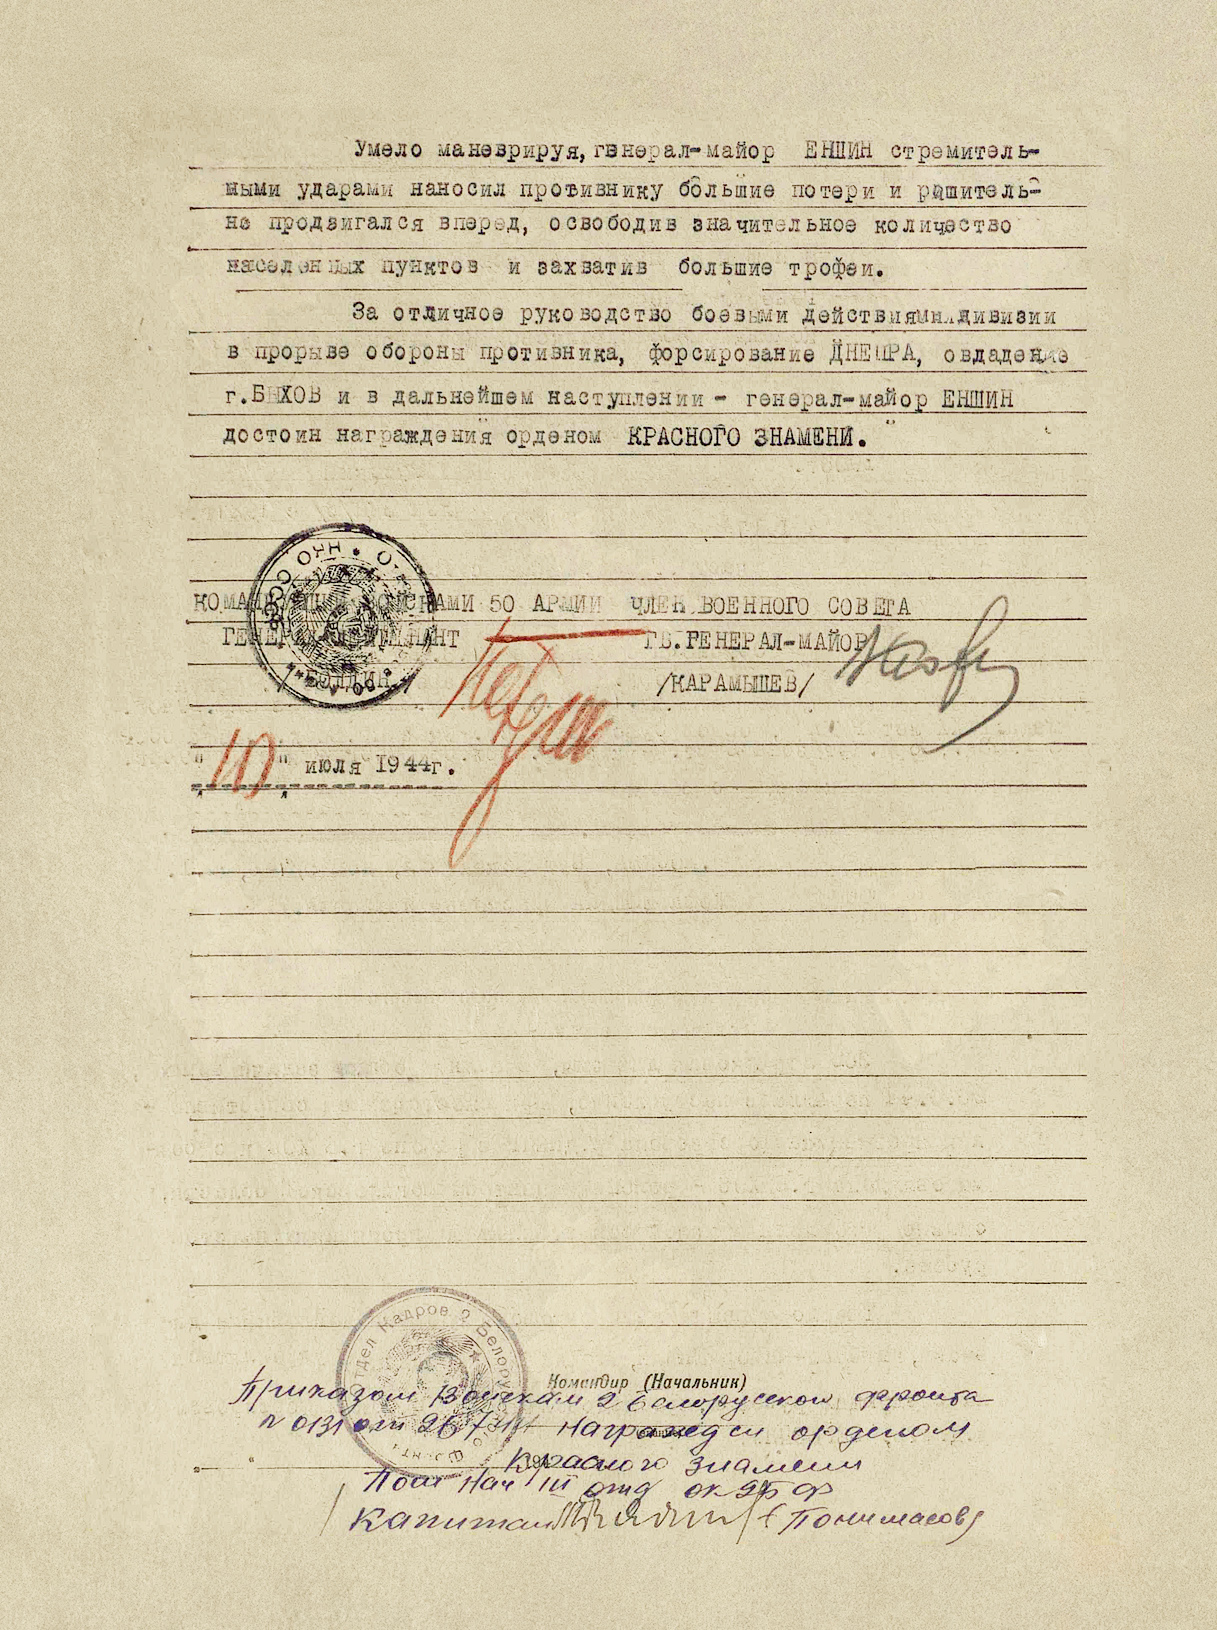 Умело маневрируя, генерал-майор ЕНШИН стремитель-
ными ударами наносил противнику большие потери и решитель-
но продвигался вперед, освободив значительное количество
населенных пунктов и захватив большие трофеи.
За отличное руководство боевыми действиями дивизии
в прорыве обороны противника, форсирование ДНЕПРА, овладение
г.БЫХОВ и в дальнейшем наступлении - генерал-майор ЕНШИН
достоин награждения орденом КРАСНОГО ЗНАМЕНИ.
НКО СССР
КОМАНДУЮЩИЙ ВОЙСКАМИ 50 АРМИИ ЧЛЕН ВОЕННОГО СОВЕТА
ГЕНЕРАЛ-ЛЕЙТЕНАНТ ГВ.ГЕНЕРАЛ-МАЙОР
БОЛДИН /КАРАМЫШЕВ/
"10" июля 1944г.
Отдел Кадров 2 Белорус
Командир (Начальник)
Приказом Войскам 2 Белорусского фронта
N 0131 от 26 7 44 Награжден орденом
Красного Знамени
Пом Нач III отд ОК 2БФ
Капитан Понимасов